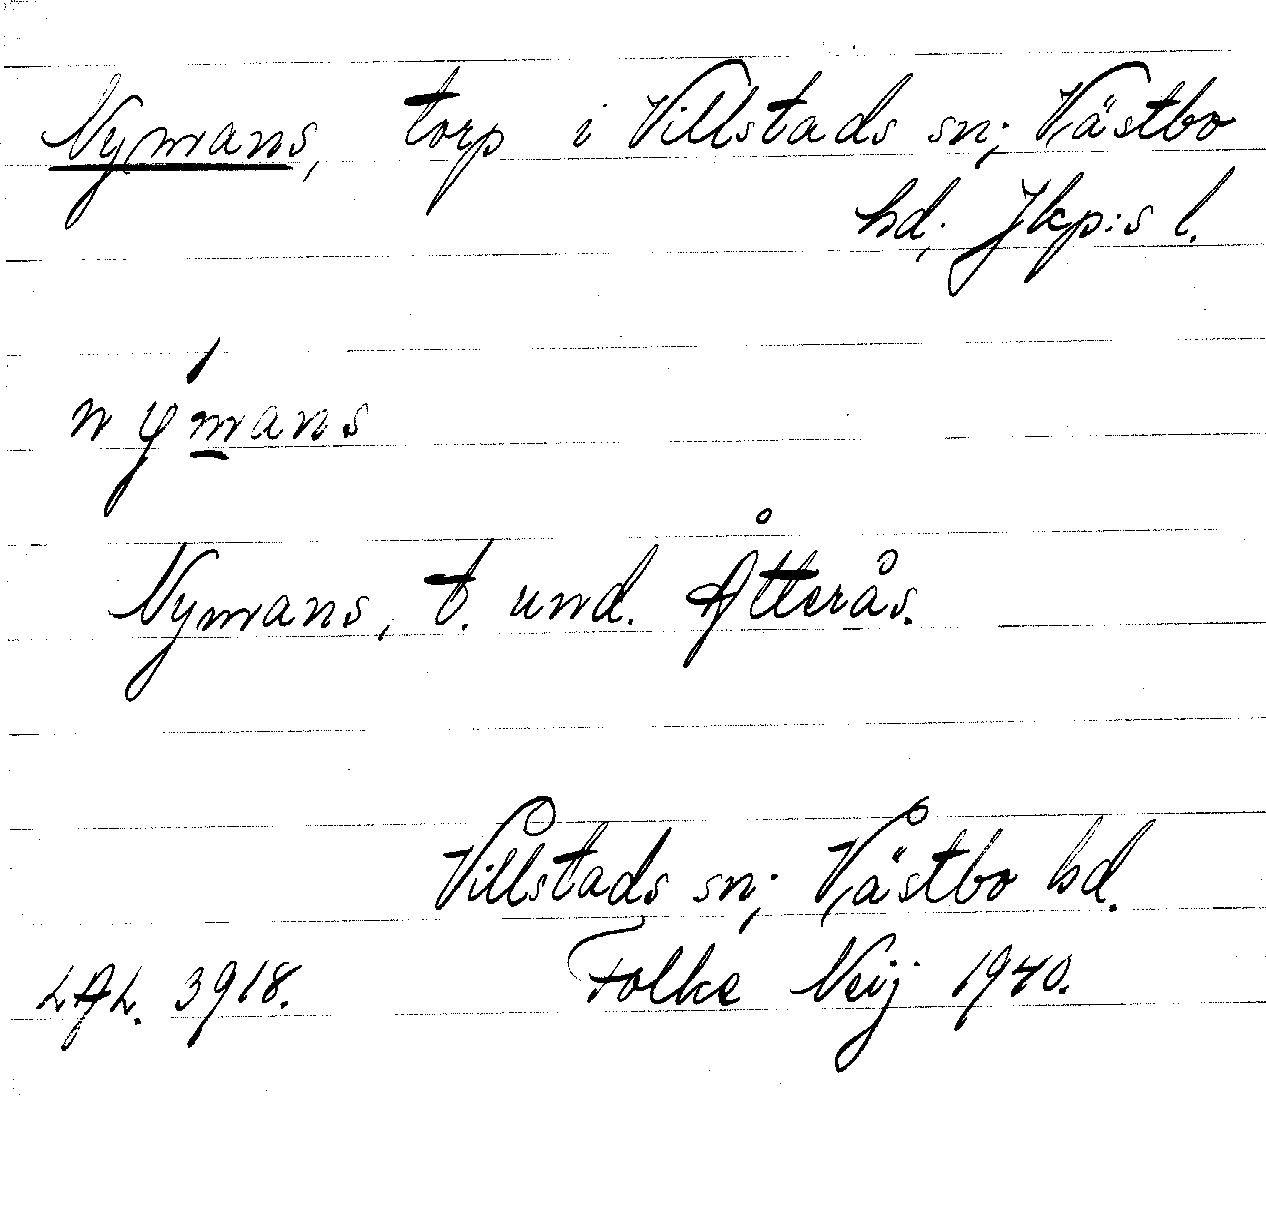 Nymans, torp i Villstads sn; Västbo
hd; Jkp:s l.
nýmans
Nymans, t. und. Åtterås.
Villstads sn; Västbo hd.
LAL. 3918. Folke Neij 1940.